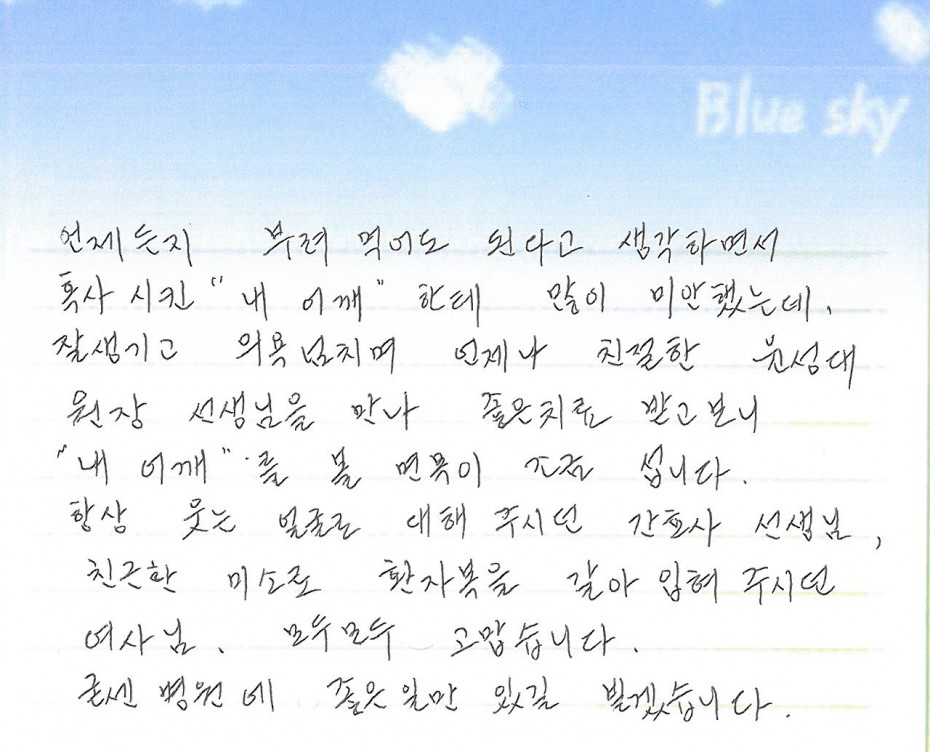 Blue sky
언제든지 부려 먹어도 된다고 생각하면서
혹사 시킨 "내 어깨" 한테 많이 미안했는데,
잘생기고 의욕넘치며 언제나 친절한 윤성대
원장 선생님을 만나 좋은치료 받고보니
"내 어깨"를 볼 면목이 조금 섭니다.
항상 웃는 얼굴로 대해 주시던 간호사 선생님,
친근한 미소로 환자복을 갈아 입혀 주시던
여사님, 모두모두 고맙습니다.
굳센 병원에 좋은일만 있길 빌겠습니다.